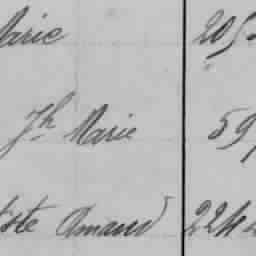 Marie 205
Jh Marie 59
iste Amand 224